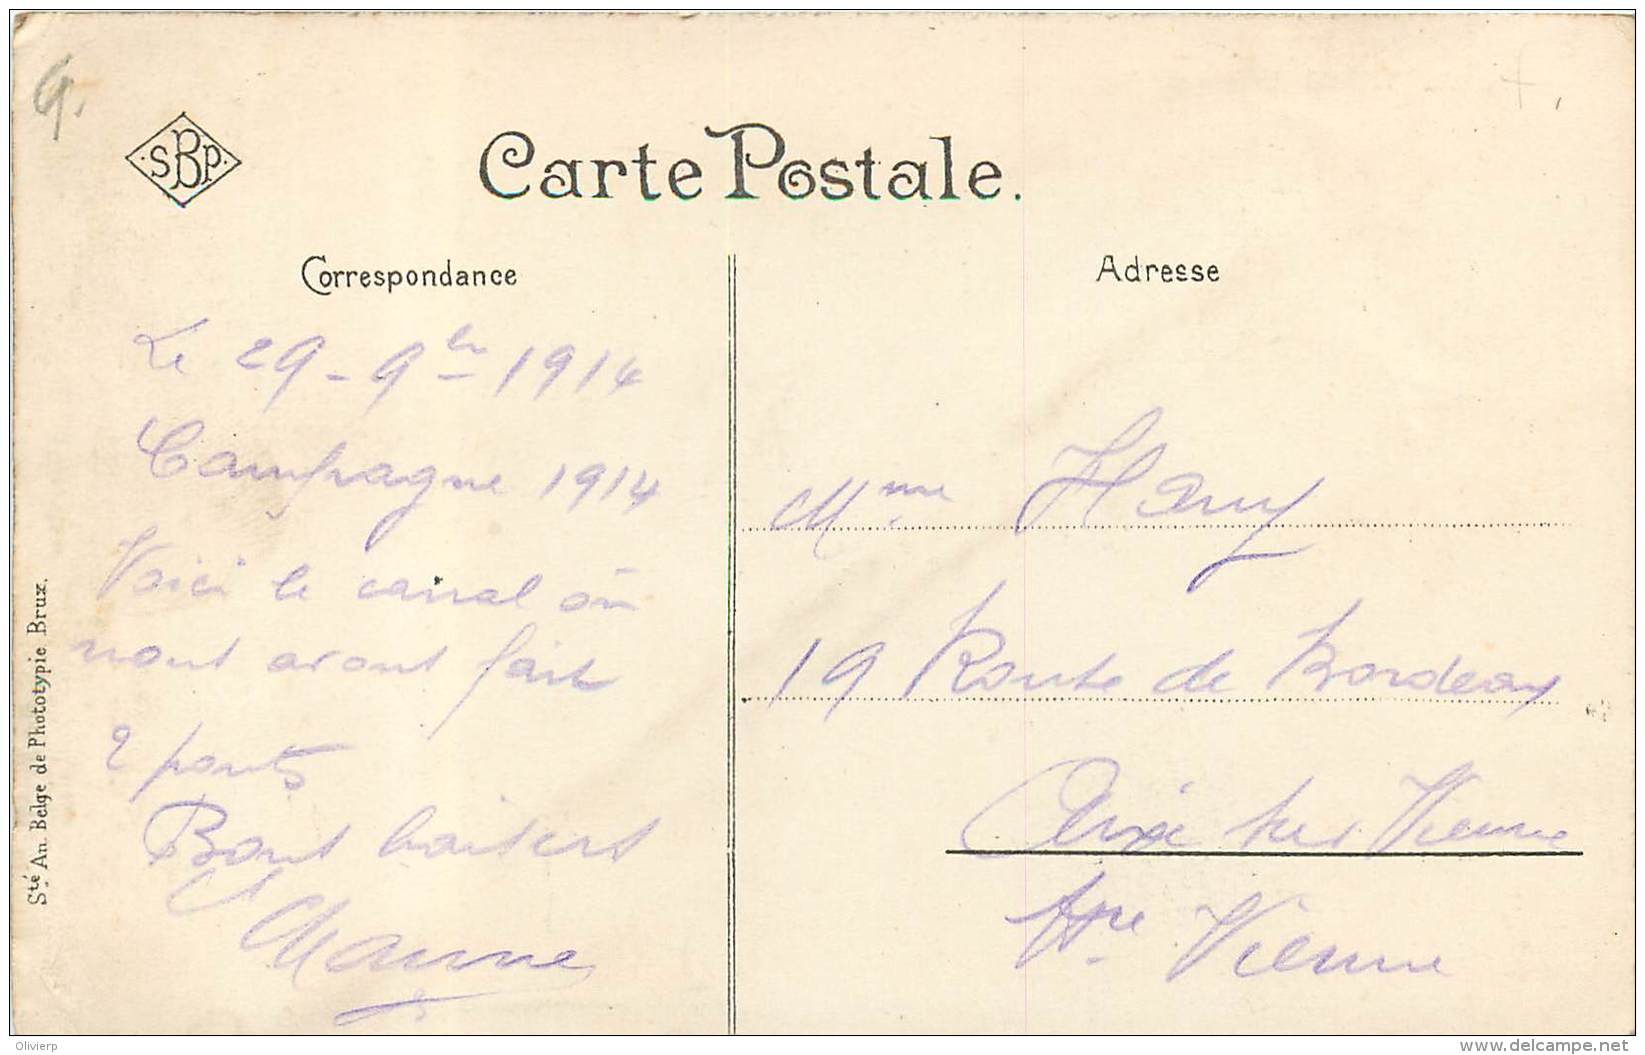 G.
SBP
Carte Postale.
Correspondance
Le 29 - 9bre 1914
Campagne 1914
Voici le canal où
nous avons fait
2 ponts
Bons baisers
Adresse
Mme Hany
19 Route de Bordeaux
Aixe sur Vienne
Hte Vienne
Sté An. Belge de Phototypie Brux.
Olivierp
www.delcampe.net